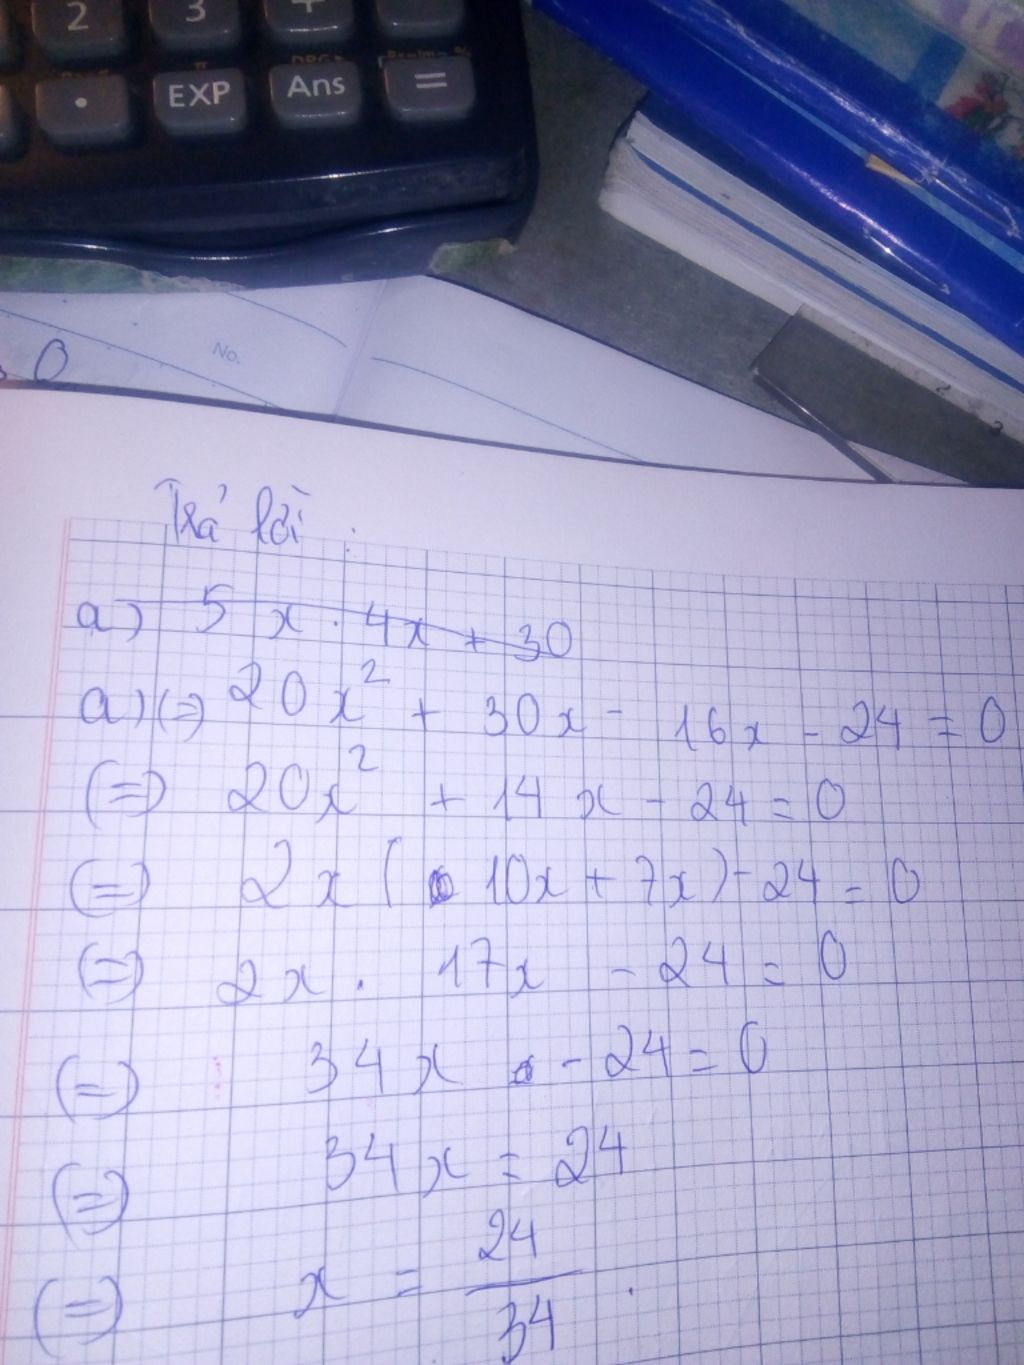 2 3 +
. EXP Ans =
0
No.
2
3
Trả lời :
a) 5x . 4x + 30
a) (=) 20x² + 30x - 16x - 24 = 0
(=) 20x² + 14x - 24 = 0
(=) 2x ( 10x + 7x) - 24 = 0
(=) 2x . 17x - 24 = 0
(=) 34x - 24 = 0
(=) 34x = 24
(=) x = 24/34 .